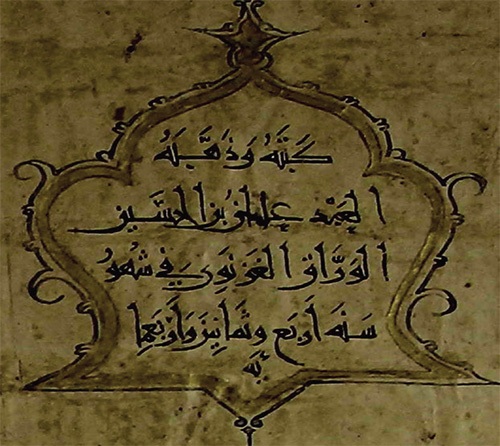 كَتَبَهُ وَذَهَّبَهُ
العَبْد عثمن بن الحُسَين
الوَرَّاق الغزنوي في شُهُور
سَنَه أَربَع وثَمانين وأَربَعما
ئه